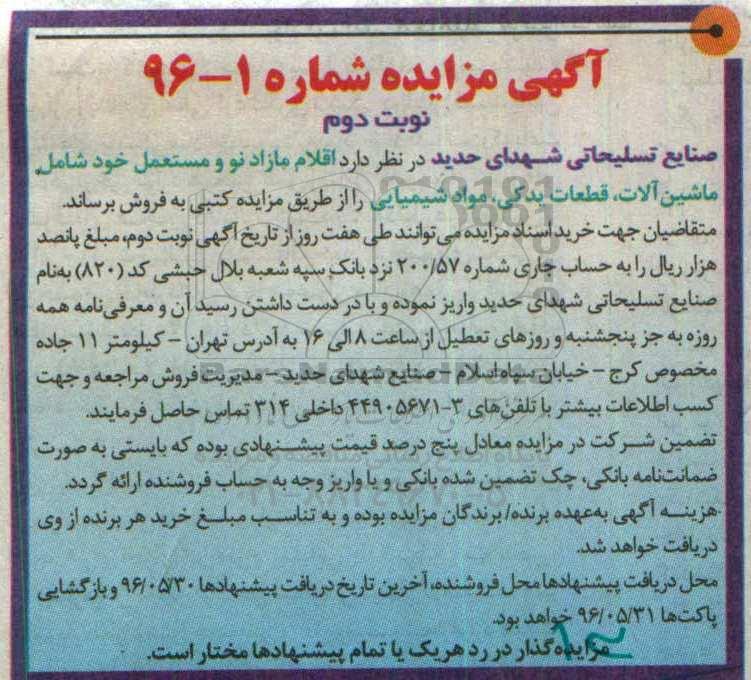 آگهی مزایده شماره ۱-۹۶
نوبت دوم
صنایع تسلیحاتی شهدای حدید در نظر دارد اقلام مازاد نو و مستعمل خود شامل
ماشین آلات، قطعات یدکی، مواد شیمیایی را از طریق مزایده کتبی به فروش برساند.
متقاضیان جهت خرید اسناد مزایده می‌توانند طی هفت روز از تاریخ آگهی نوبت دوم، مبلغ پانصد
هزار ریال را به حساب جاری شماره ۲۰۰/۵۷ نزد بانک سپه شعبه بلال حبشی کد (۸۲۰) به‌نام
صنایع تسلیحاتی شهدای حدید واریز نموده و با در دست داشتن رسید آن و معرفی‌نامه همه
روزه به جز پنجشنبه و روزهای تعطیل از ساعت ۸ الی ۱۶ به آدرس تهران – کیلومتر ۱۱ جاده
مخصوص کرج – خیابان سپاه اسلام – صنایع شهدای حدید – مدیریت فروش مراجعه و جهت
کسب اطلاعات بیشتر با تلفن‌های ۳-۴۴۹۰۵۶۷۱ داخلی ۳۱۴ تماس حاصل فرمایند.
تضمین شرکت در مزایده معادل پنج درصد قیمت پیشنهادی بوده که بایستی به صورت
ضمانت‌نامه بانکی، چک تضمین شده بانکی و یا واریز وجه به حساب فروشنده ارائه گردد.
هزینه آگهی به‌عهده برنده/ برندگان مزایده بوده و به تناسب مبلغ خرید هر برنده از وی
دریافت خواهد شد.
محل دریافت پیشنهادها محل فروشنده، آخرین تاریخ دریافت پیشنهادها ۹۶/۰۵/۳۰ و بازگشایی
پاکت‌ها ۹۶/۰۵/۳۱ خواهد بود.
مزایده‌گذار در رد هریک یا تمام پیشنهادها مختار است.